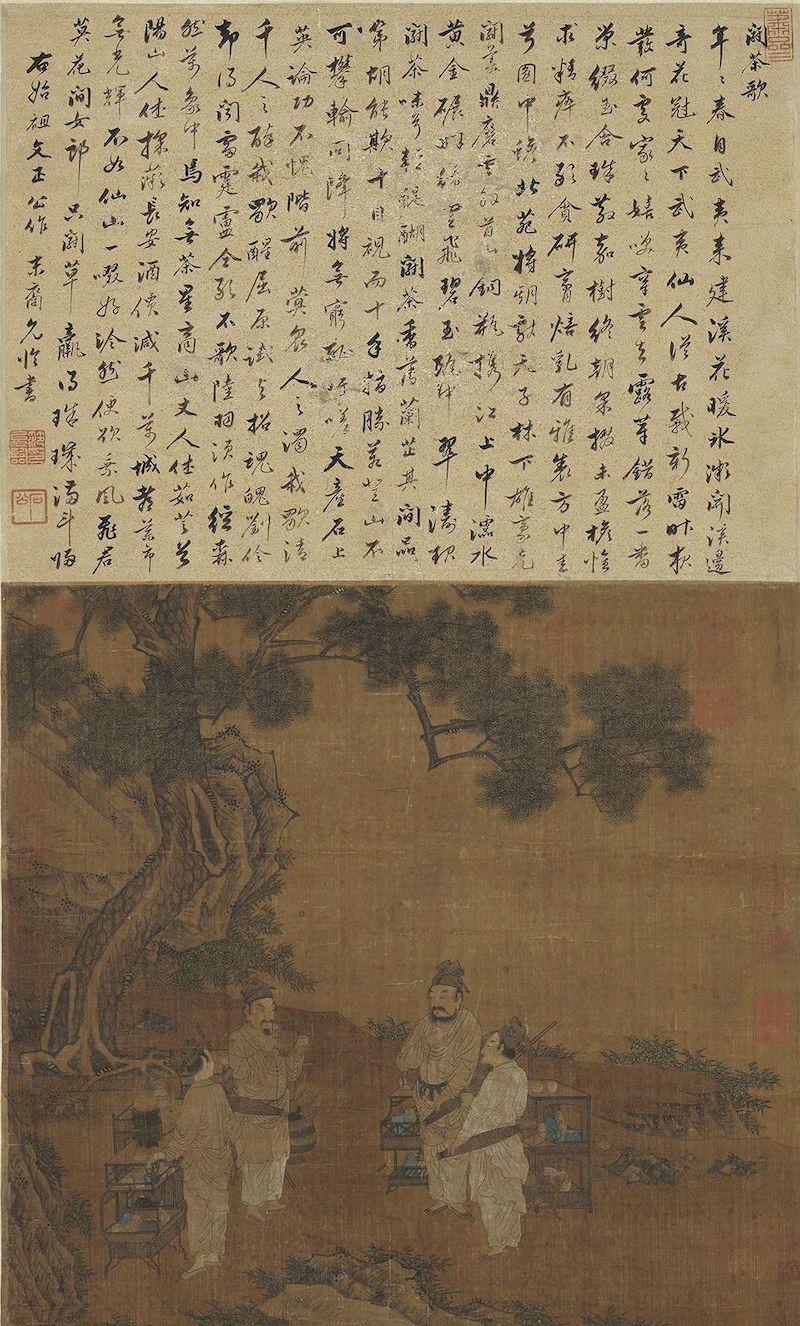 鬪茶歌
年〻春自武夷來建溪先暖氷漸開溪邊
奇花冠天下武夷仙人從古栽新雷昨夜
發何處家〻嬉笑穿雲去露芽錯落一番
榮綴玉含珠散嘉樹終朝采掇未盈襜惟
求精粹不敢貪研膏焙乳有雅製方中圭
兮圓中蟾北苑將期獻天子林下雄豪先
鬪美鼎磨雲外首山銅瓶攜江上中濡水
黄金碾畔綠塵飛碧玉甌中翠濤起
鬪茶味兮輕醍醐鬪茶香薄蘭芷其間品
第胡能欺十目視而十手指勝若登山不
可攀輸同降將無窮恥吁嗟天產石上
英論功不愧階前蓂衆人之濁我歌清
千人之醉我歌醒屈原試與招魂魄劉伶
却得聞雷霆盧仝敢不歌陸羽須作經森
然萬象中焉知無茶星商山丈人休茹芝首
陽山人休採薇長安酒價減千萬城都藥市
無光輝不如仙山一啜好泠然便欲乘風飛君
莫花間女郎只鬪草贏得珠璣滿斗歸
右始祖文正公作 末裔允臨書